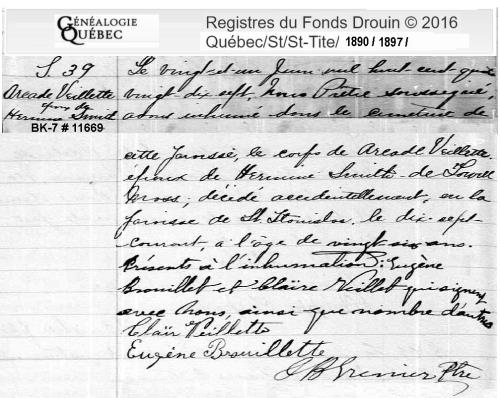 GÉNÉALOGIE
QUÉBEC
Registres du Fonds Drouin © 2016
Québec/St/St-Tite/ 1890 / 1897 /
S. 39
Arcade Veillette
époux de
Hermine Smith
BK-7 # 11669
Le vingt-et-un Juin mil huit cent quatre
vingt dix sept, nous Prêtre soussigné,
avons inhumé dans le cimetière de
cette Paroisse, le corps de Arcade Veillette
époux de Hermine Smith de Lowell
Mass, décédé accidentellement, en la
Paroisse de St Stanislas, le dix-sept
courant, à l'âge de vingt six ans.
Présents à l'inhumation: Eugène
Brouillet et Claïre Veillet qui signent
avec Nous, ainsi que nombre d'autres
Claïr Veillette
Eugène Brouillette
Grenier Ptre